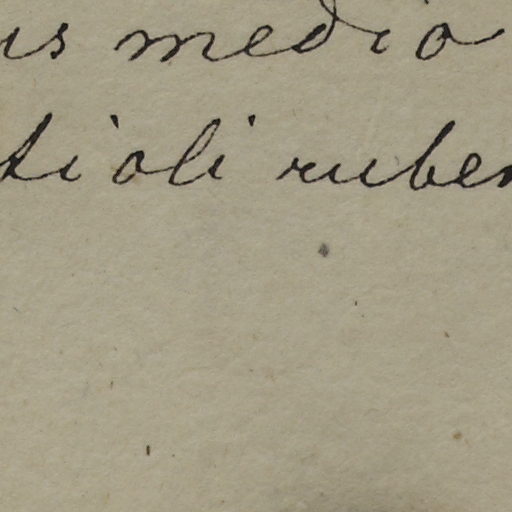 us medio
tioli ruben